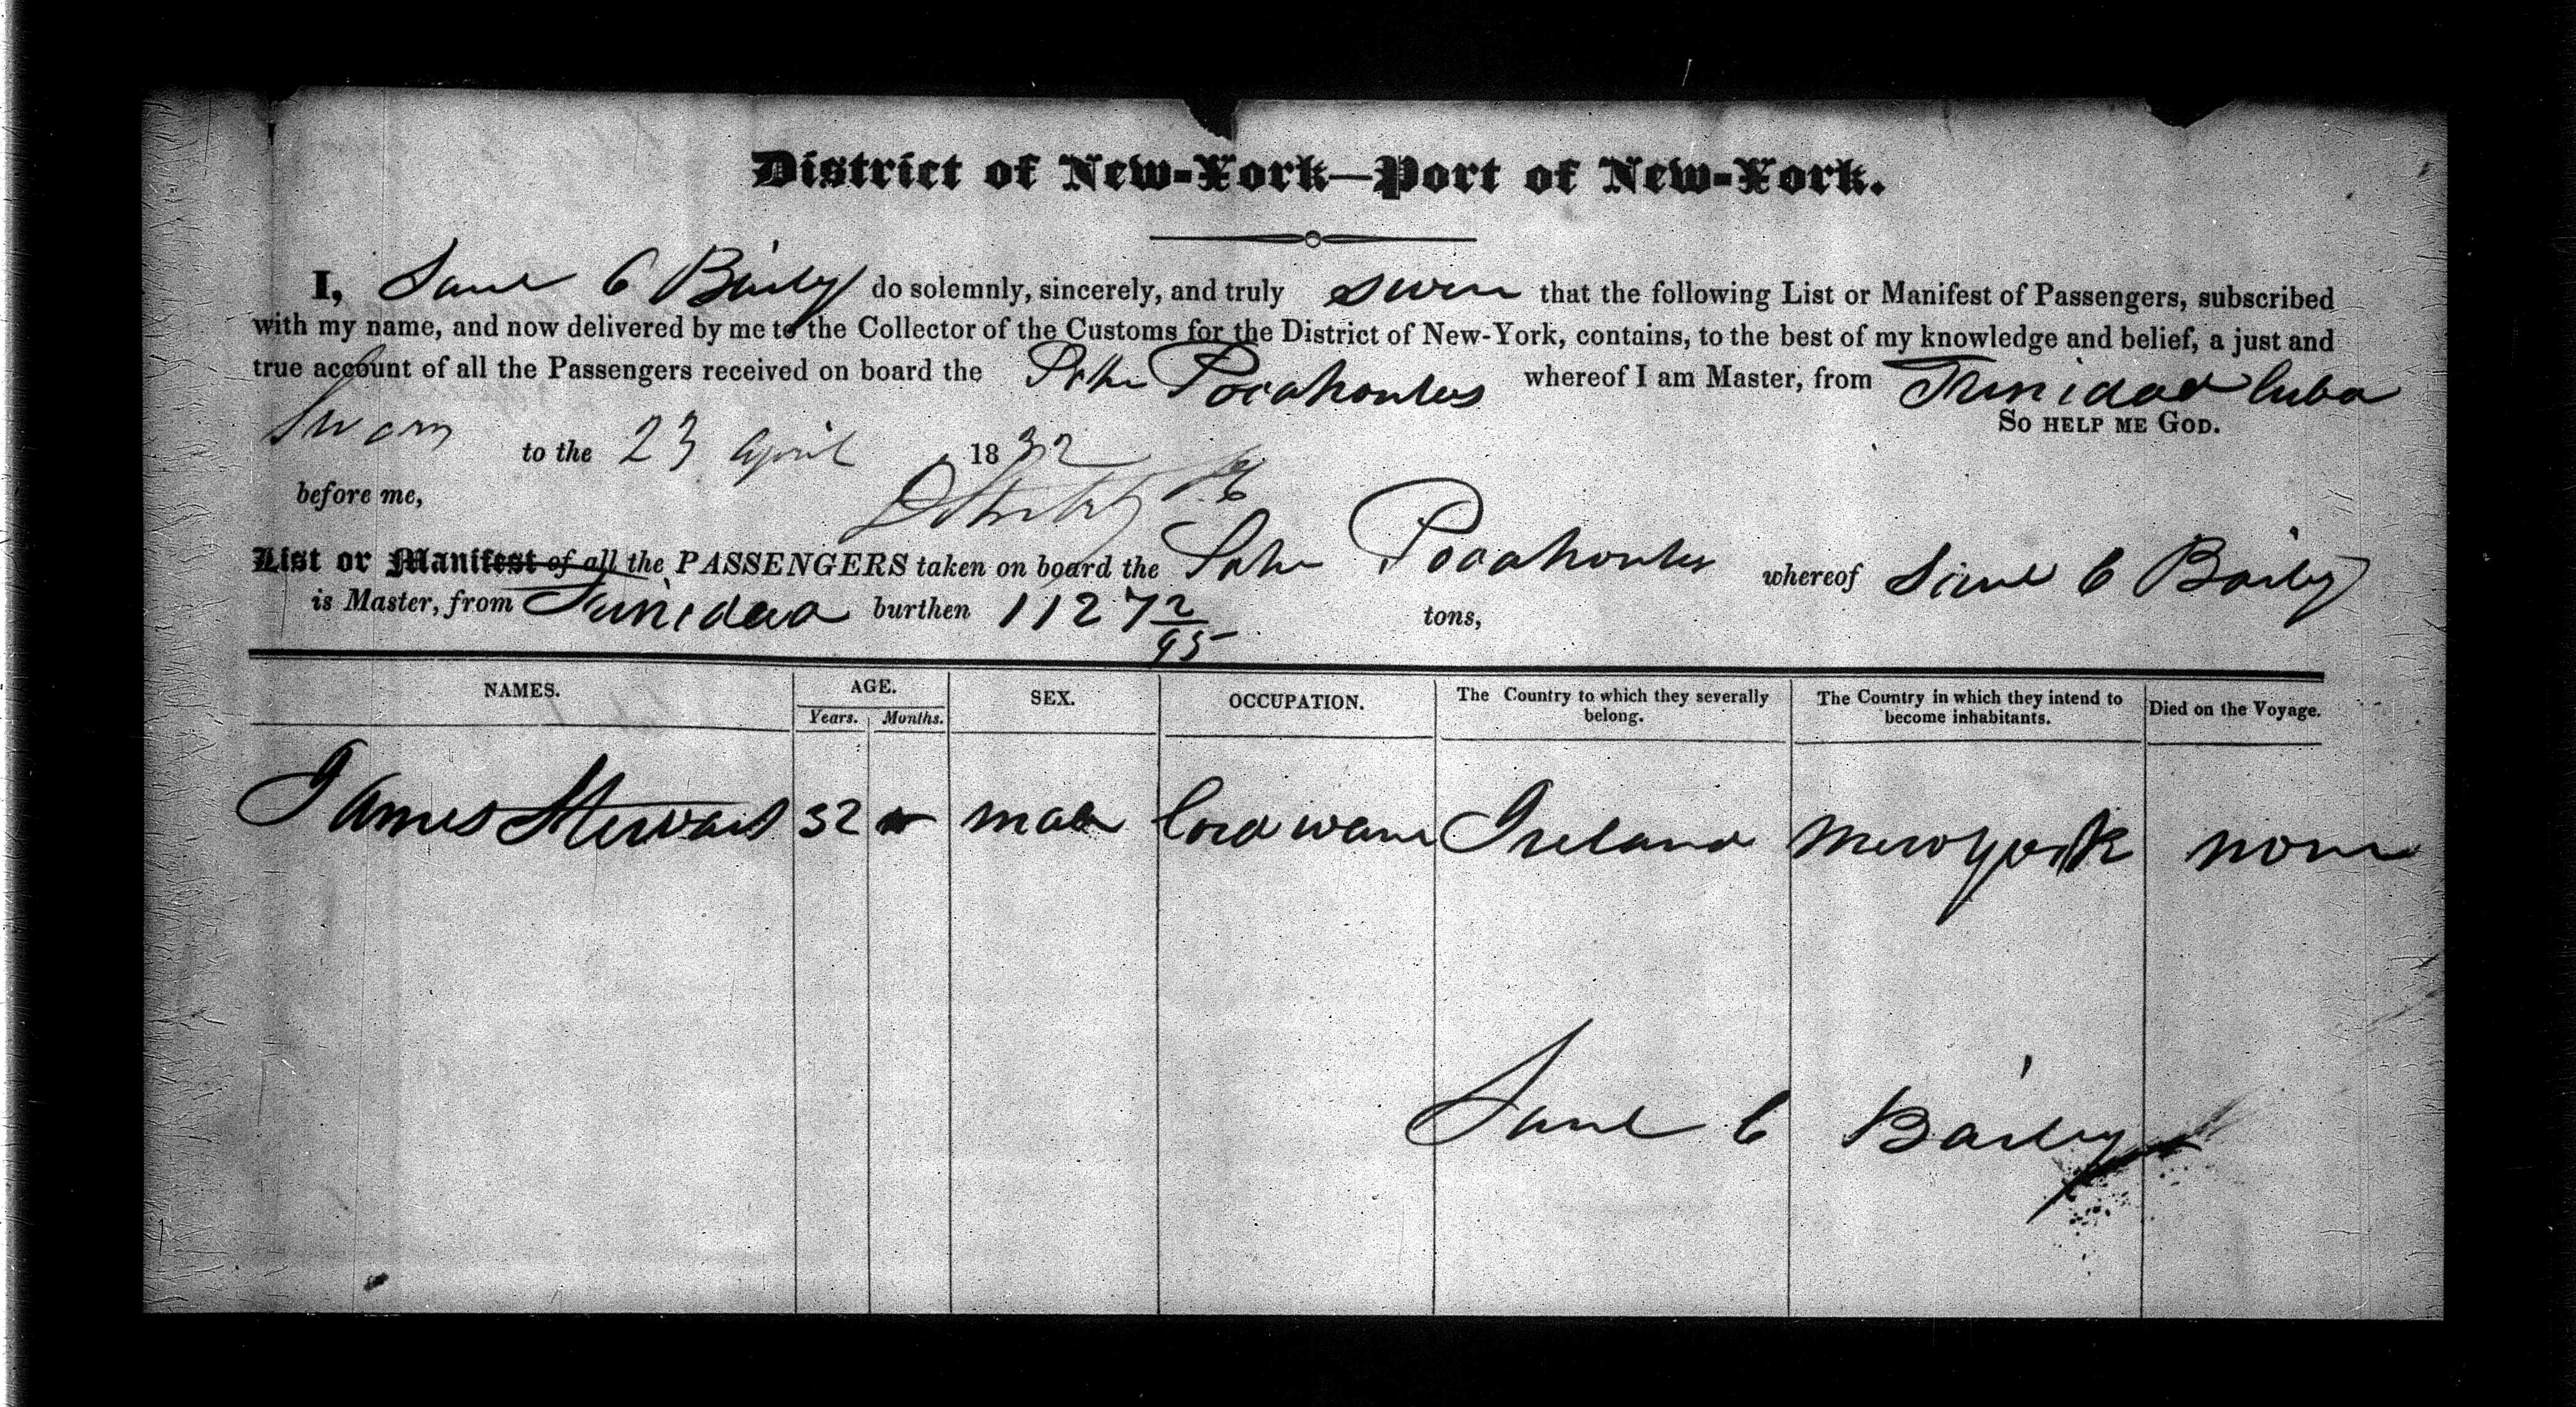 District of New-York—Port of New-York.
I, Saml C Baily do solemnly, sincerely, and truly swere that the following List or Manifest of Passengers, subscribed
with my name, and now delivered by me to the Collector of the Customs for the District of New-York, contains, to the best of my knowledge and belief, a just and
true account of all the Passengers received on board the Pocahontus whereof I am Master, from Trinidad Cuba
So HELP ME GOD.
Sworn to the 23 April 1832
before me,
List or Manifest of all the PASSENGERS taken on board the Pocahontus whereof Saml C Baily
is Master, from Trinidad burthen 112 72/95 tons,
NAMES. AGE. SEX. OCCUPATION. The Country to which they severally belong. The Country in which they intend to become inhabitants. Died on the Voyage.
Years. Months.
James Steward 32 male Cord waner Ireland New York none
Saml C Baily